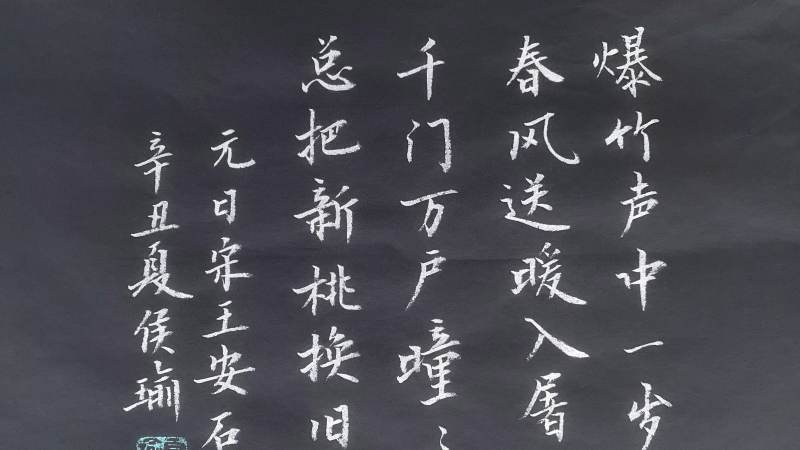 爆竹声中一岁
春风送暖入屠
千门万户曈
总把新桃换旧
元日宋王安石
辛丑夏侯瑜